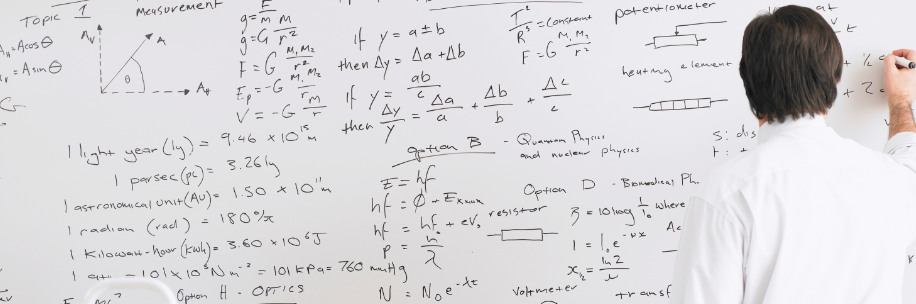 Topic 1
Measurement
A_H = A cos θ
A_V = A sin θ
A_V
A
θ
A_H
g = F/m
g = G M/r²
F = G M₁M₂/r²
E_p = -G M₁M₂/r
V = -G m/r
if y = a ± b
then Δy = Δa + Δb
if y = ab/c
then Δy/y = Δa/a + Δb/b + Δc/c
T²/R³ = constant
F = G M₁M₂/r²
potentiometer
heating element
1 light year (ly) = 9.46 × 10¹⁵ m
1 parsec (pc) = 3.26 ly
1 astronomical unit (AU) = 1.50 × 10¹¹ m
1 radian (rad) = 180°/π
1 kilowatt-hour (kWh) = 3.60 × 10⁶ J
1 atm = 101 × 10³ N m⁻² = 101 kPa = 760 mmHg
Option H - OPTICS
option B - Quantum Physics
and nuclear physics
E = hf
hf = Ø + E
hf = hf₀ + eV₀
p = h/λ
N = N₀e^-λt
resistor
voltmeter
Option D - Biomedical Ph.
where
I = I₀e^-μx
x½ = ln2/μ
transf
s: dis
t: